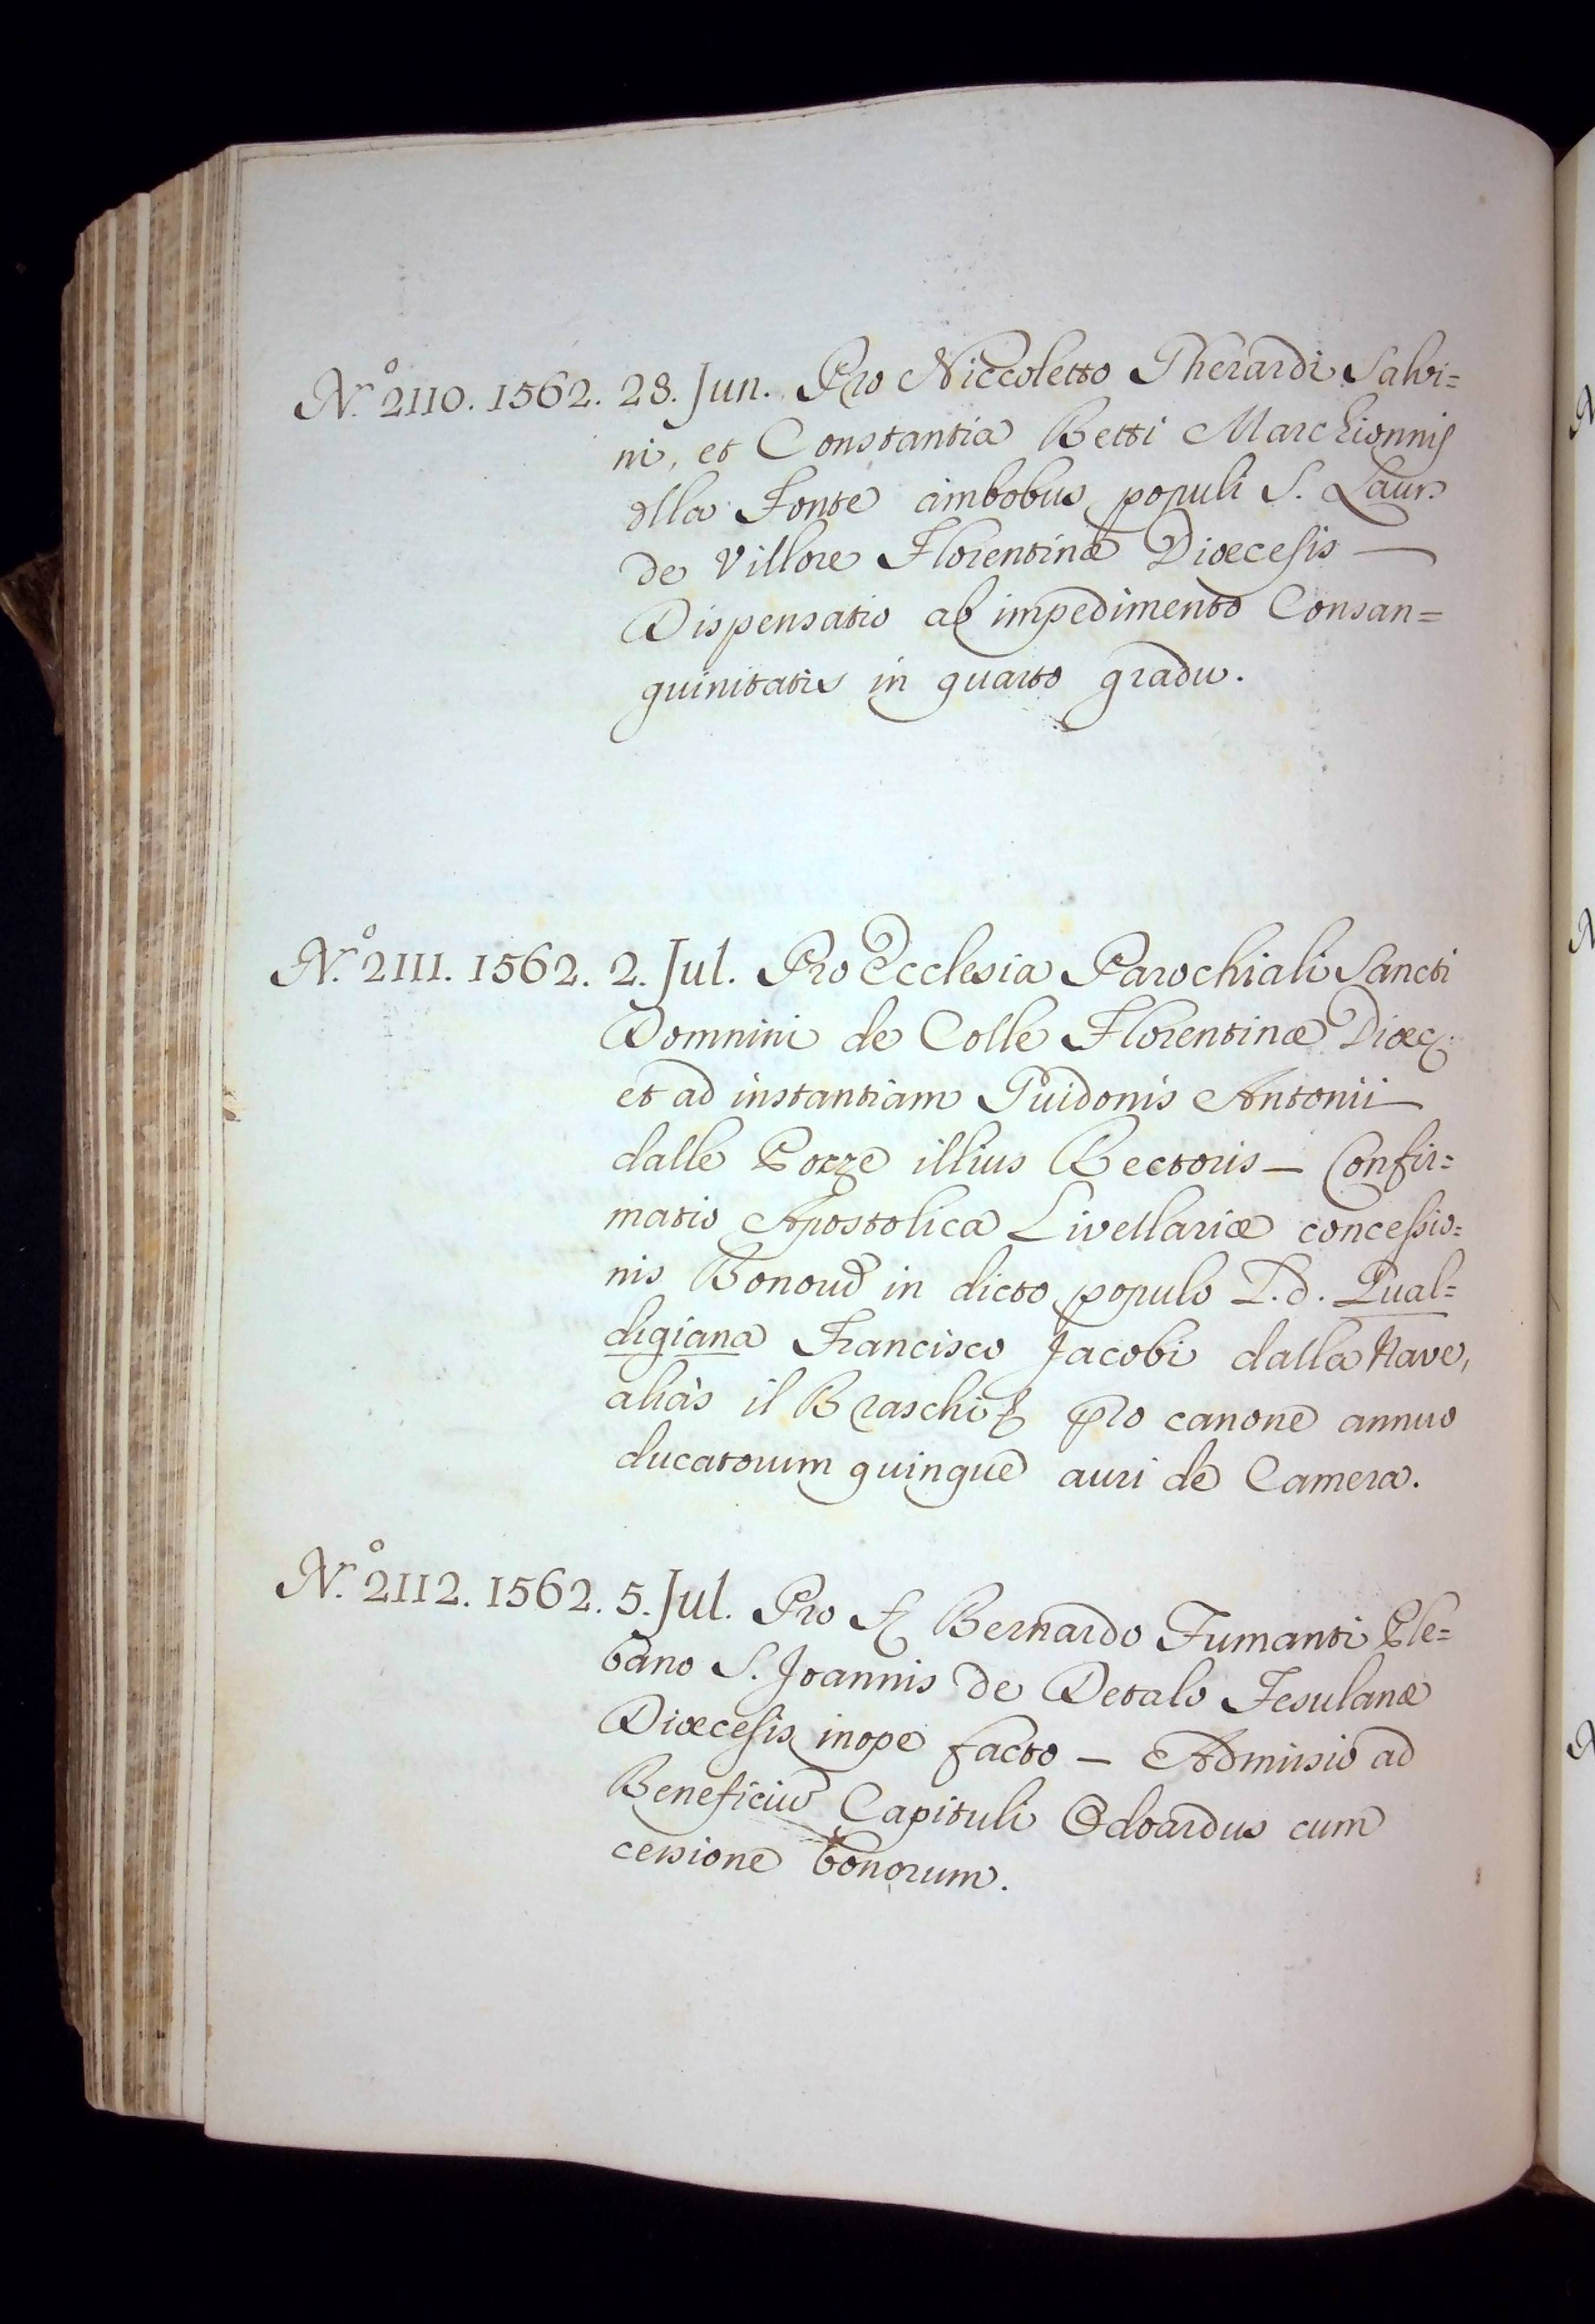 N.º 2110. 1562. 28. Jun. Pro Niccoletto Gherardi Salvi=
ni, et Constantia Betti Marchionnis
dlla Fonte ambobus populi S. Laur.
de Villore Florentinæ Diœcesis —
Dispensatio ab impedimento Consan=
guinitatis in quarto gradu.
N.º 2111. 1562. 2. Jul. Pro Ecclesia Parochiali Sancti
Domnini de Colle Florentinæ Diœc.
et ad instantiam Guidonis Antonii
dalle Pozze illius Rectoris — Confir=
matio Apostolica Livellariæ concessio=
nis Bonoru in dicto populo L.d. Gual=
digiana Francisco Jacobi dalla Nave,
aliàs il Braschi pro canone annuo
ducatorum quinque auri de Camera.
N.º 2112. 1562. 5. Jul. Pro Bernardo Fumanti Ple=
bano S. Joannis de Decalo Fesulanæ
Diœcesis inope facto — Admissio ad
Beneficiu Capituli Odoardus cum
cessione bonorum.